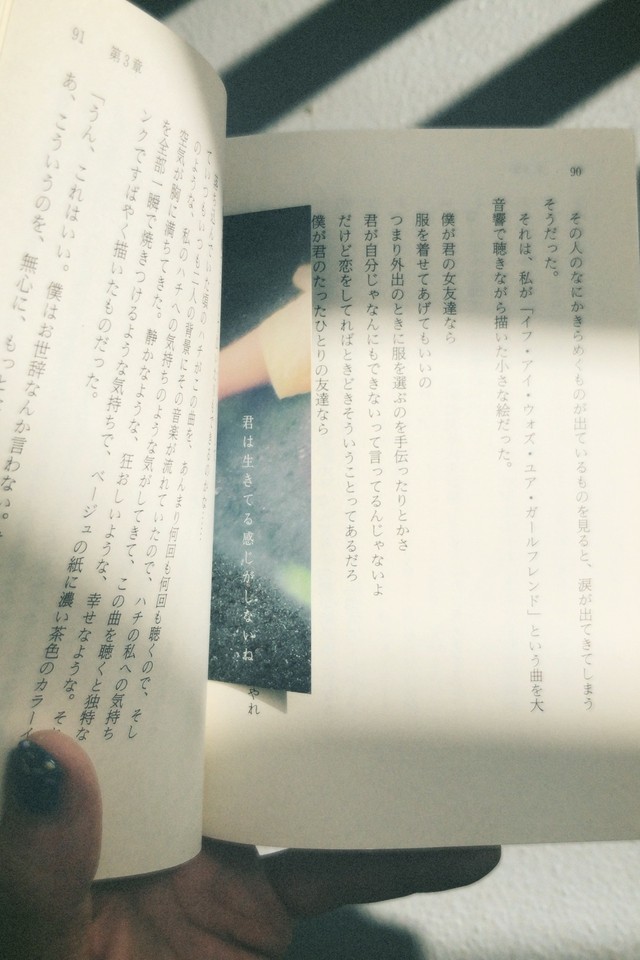 90
その人のなにかきらめくものが出ているものを見ると、涙が出てきてしまう
そうだった。
それは、私が「イフ・アイ・ウォズ・ユア・ガールフレンド」という曲を大
音響で聴きながら描いた小さな絵だった。
僕が君の女友達なら
服を着せてあげてもいいの
つまり外出のときに服を選ぶのを手伝ったりとかさ
君が自分じゃなんにもできないって言ってるんじゃないよ
だけど恋をしてればときどきそういうことってあるだろ
僕が君のたったひとりの友達なら
やれ
君は生きてる感じがしないね
91
第3章
ていた頃のハチがこの曲を、あんまり何回も何回も聴くので、そし
ていつもいつも二人の背景にその音楽が流れていたので、ハチの私への気持ち
のような、私のハチへの気持ちのような気がしてきて、この曲を聴くと独特な
空気が胸に満ちてきた。静かなような、狂おしいような、幸せなような。そ
を全部一瞬で焼きつけるような気持ちで、ベージュの紙に濃い茶色のカラーイ
ンクですばやく描いたものだった。
「うん、これはいい。僕はお世辞なんか言わない。
あ、こういうのを、無心に、もっと